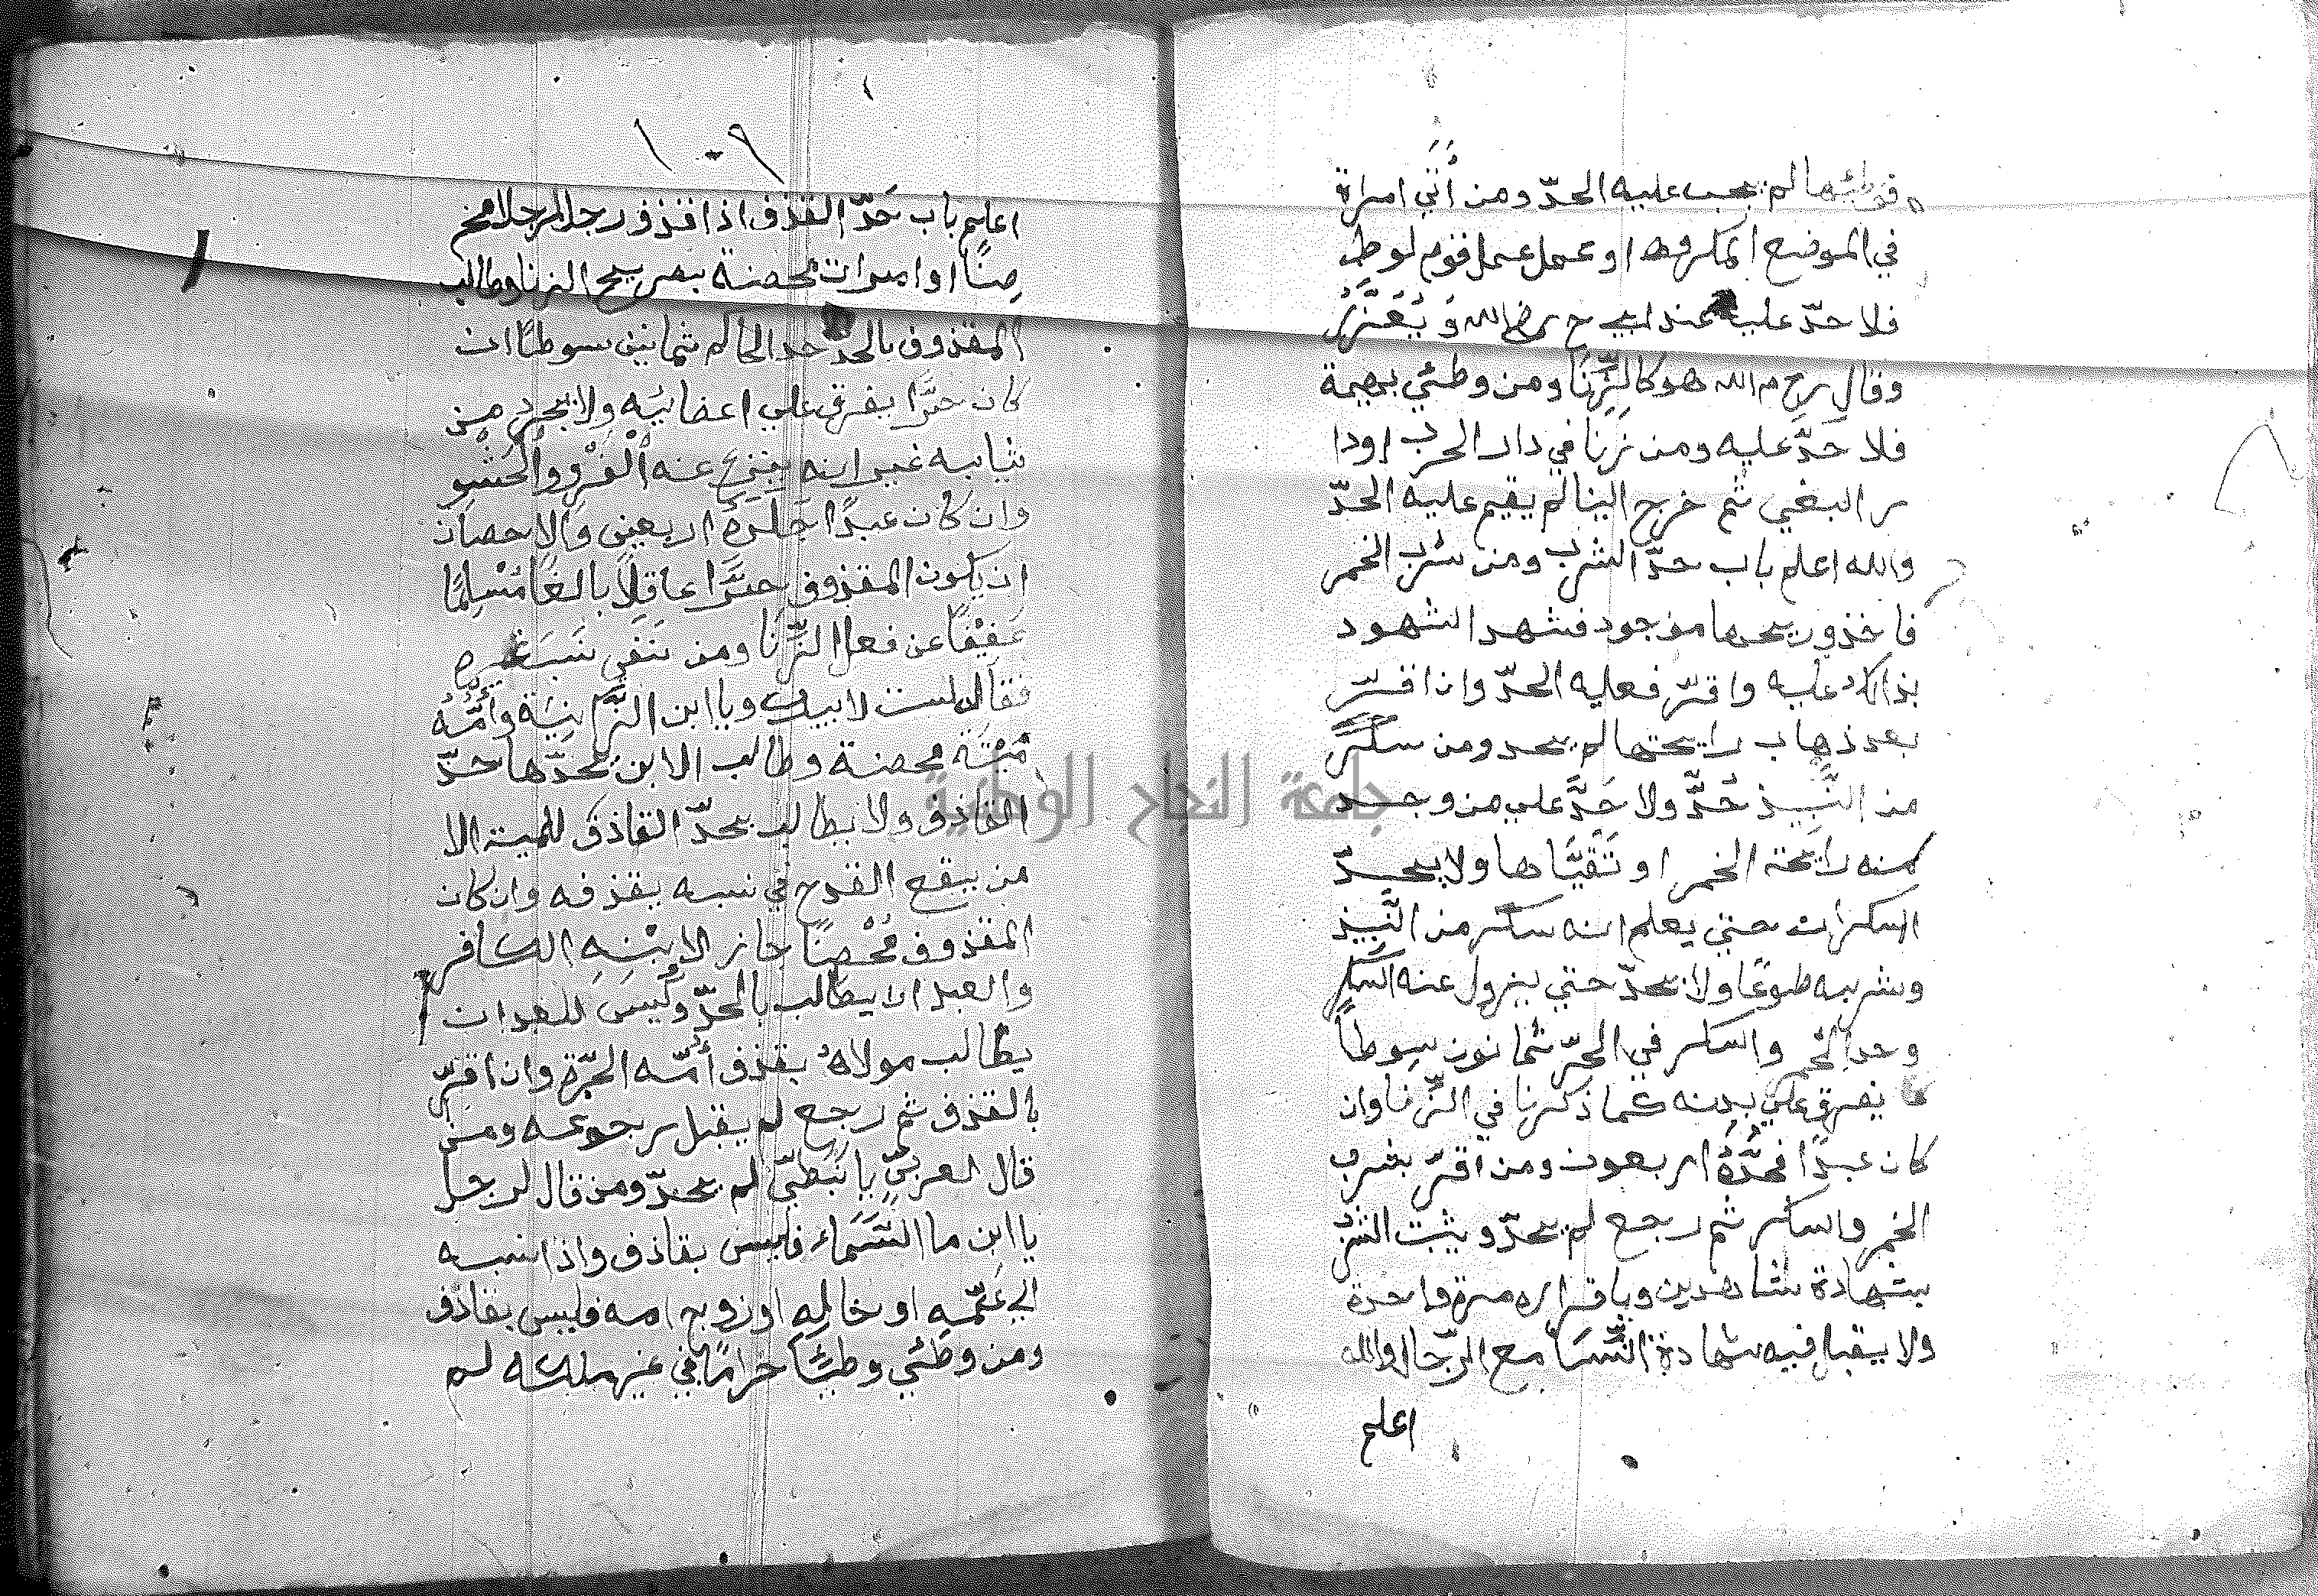 فوطئها لم يجب عليه الحدّ ومن أَتَي امراة
في الموضع المكروه او عمل عمل قوم لوط
فلا حدّ عليه عند ابي ح رضي الله وَيُعَزَّرُ
وقال رحم الله هو كالزِّنَا ومن وطئي بهيمة
فلا حَدَّ عليه ومن زنا في دار الحرب اودا
ر البغي ثم خرج الينا لم يقيم عليه الحدّ
والله اعلم باب حدّ الشرب ومن شرب الخمر
فاخذ وريحها موجود فشهد الشهود
بذالك عليه واقرّ فعليه الحدّ وان اقرّ
بعد ذهاب رايحتها لم يحد ومن سكر
من النَّبِيذ حُدَّ ولا حَدَّ علي من وجد
منه رايحة الخمر او تَقَيَّاها ولا يحدّ
السكران حتي يعلم انه سكر من النَّبيذ
وشربه طوعًا ولا يحدّ حتي يزول عنه السكر
وحد الخمر والسكر في الحرّ ثمانون سوطاً
يفرق علي بدنه كما ذكرنا في الزّنا وان
كان عبدًا فحدُّهُ اربعون ومن اقرّ بشرب
الخمر والسكر ثم رجع لم يحدّ ويثبت الشرب
بشهادة شاهدين وباقراره مرة واحدة
ولا يقبل فيه شهادة النِّسَا مع الرّجال والله
اعلم
١٠٩
اعلم باب حَدّ القذف اذا قذف رجل رجلا مح
صنًا او امرات محصنة بصريح الزنا وطالب
المقذوف بالحد حد الحاكم ثمانين سوطًا ان
كان حرًّا يفرق علي اعضائيه ولا يجرد من
ثيابه غير انه ينزع عنه الْفَرْو والْحَشْو
وان كان عبدًا جَلَدَهُ اربعين والاحصان
ان يكون المقذوف حرًّا عاقلاً بالغاً مُسْلِمًا
عَفِيْفًا عن فعل الزّنا ومن نَفَي نَسَبَ غيره
فقال لست لابيك ويا ابن الزَّانِيَة وأُمُّهُ
مَيْتَة محصنة وطالب الابن بحدّها حدّ
القاذف ولا يطالب بحدّ القاذف للميت الا
من يقع القدح في نسبه بقذفه وان كان
المقذوف مُحْصنًا جاز لابْنِهِ الكافر
والعبد ان يطالب بالحدّ وليس للعبد ان
يطالب مولاهُ بقذف أُمّه الحرّة وان اقرّ
بالقذف ثم رجع لم يقبل رجوعه ومن
قال لعربيّ يا نَبَطِيّ لم يحدّ ومن قال لرجل
يا ابن ما السَّمَاء فليس بقاذف واذا نسبه
الي عَمّه او خاله او زوج امه فليس بقاذف
ومن وطئي وطيًّا حرامًا في غير ملكه لم
جامعة النجاح الوطنية